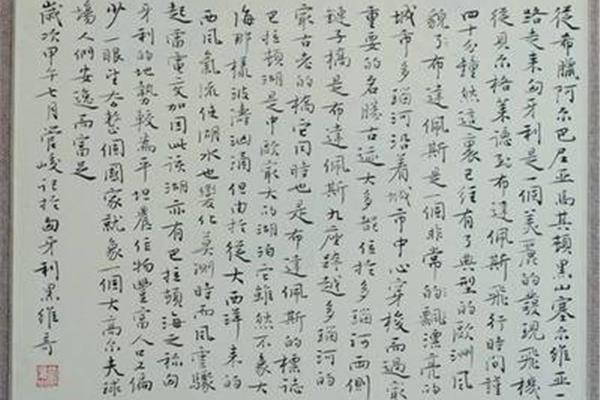 從希臘阿尔巴尼亚馬其頓黑山塞尔維亚一
路走来匈牙利是一個美麗的發現飛機
從貝尔格莱德到布達佩斯飛行時間謹
四十分種然這裏已經有了典型的歐洲風
貌了布達佩斯是一個非常的飄漂亮的
城市多瑙河沿着城市中心穿梭而過最
重要的名勝古迹大多都位於多瑙河西側
鏈子橋是布達佩斯九座跨越多瑙河的
最古老的橋它同時也是布達佩斯的標誌
巴拉頓湖是中歐最大的湖泊它雖然不象大
海那樣波濤洶涌但由於從大西洋来的
西風氣流使湖水也變化莫測時而風雲驟
起雷電交加因此該湖亦有巴拉頓海之称匈
牙利的地勢較為平坦農作物豐富人口偏
少一眼望去整個國家就象一個大高尔夫球
場人們安逸而富足
歲次甲午七月管峻記於匈牙利黑維哥